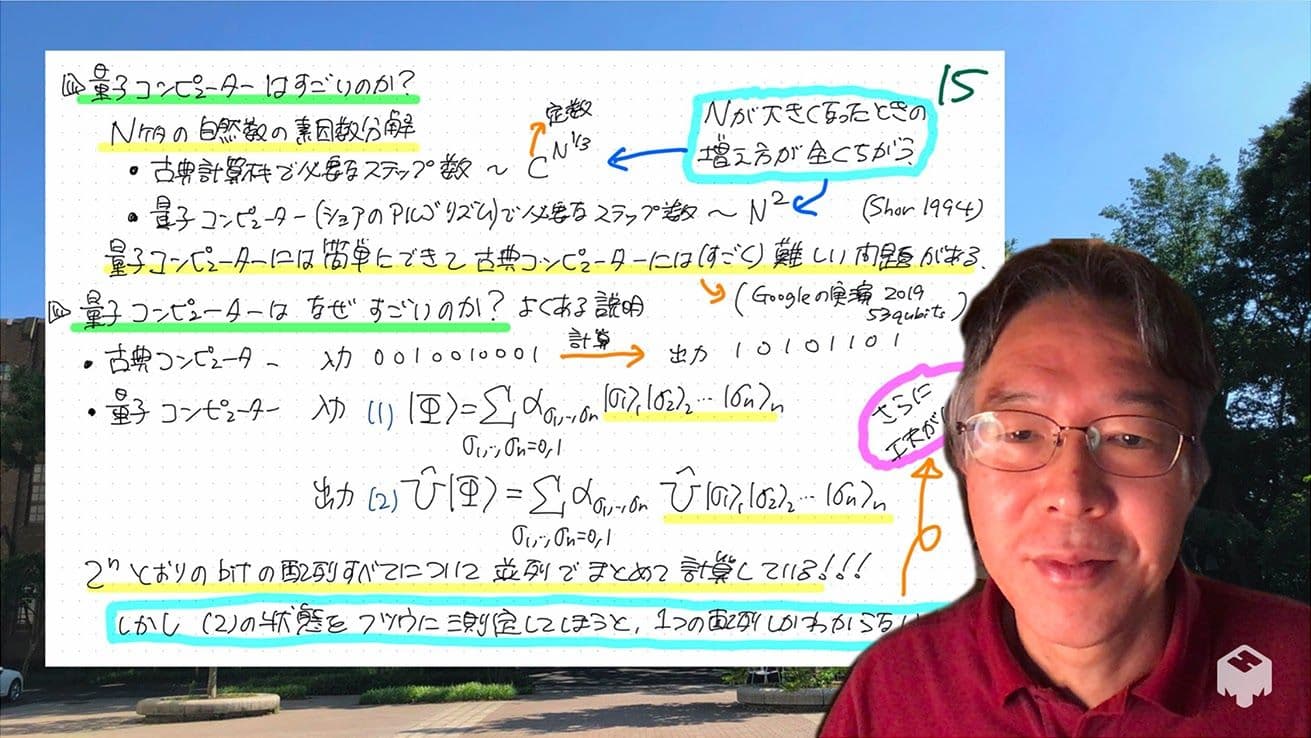 量子コンピューターはすごいのか?
15
Nケタの自然数の素因数分解
定数
Nが大きくなったときの
増え方が全くちがう。
• 古典計算機で必要なステップ数 ~ C^N^1/3
• 量子コンピューター(ショアのアルゴリズム)で必要なステップ数 ~ N² (Shor 1994)
量子コンピューターには簡単にできて古典コンピューターには(すごく)難しい問題がある.
(Googleの実演 2019
53qubits)
量子コンピューターは なぜ すごいのか? よくある説明
• 古典コンピューター 入力 0010010001 計算 → 出力 10101101
• 量子コンピューター 入力 (1) |Φ⟩=∑ α_σ1,…,σn |σ1⟩1|σ2⟩2…|σn⟩n
σ1,…,σn=0,1
さらに
工夫が
出力 (2) Û|Φ⟩=∑ α_σ1,…,σn Û|σ1⟩1|σ2⟩2…|σn⟩n
σ1,…,σn=0,1
2ⁿとおりのbitの配列すべてについて並列でまとめて計算している!!!
しかし (2)の状態をフツウに測定してしまうと, 1つの配列しかわからない